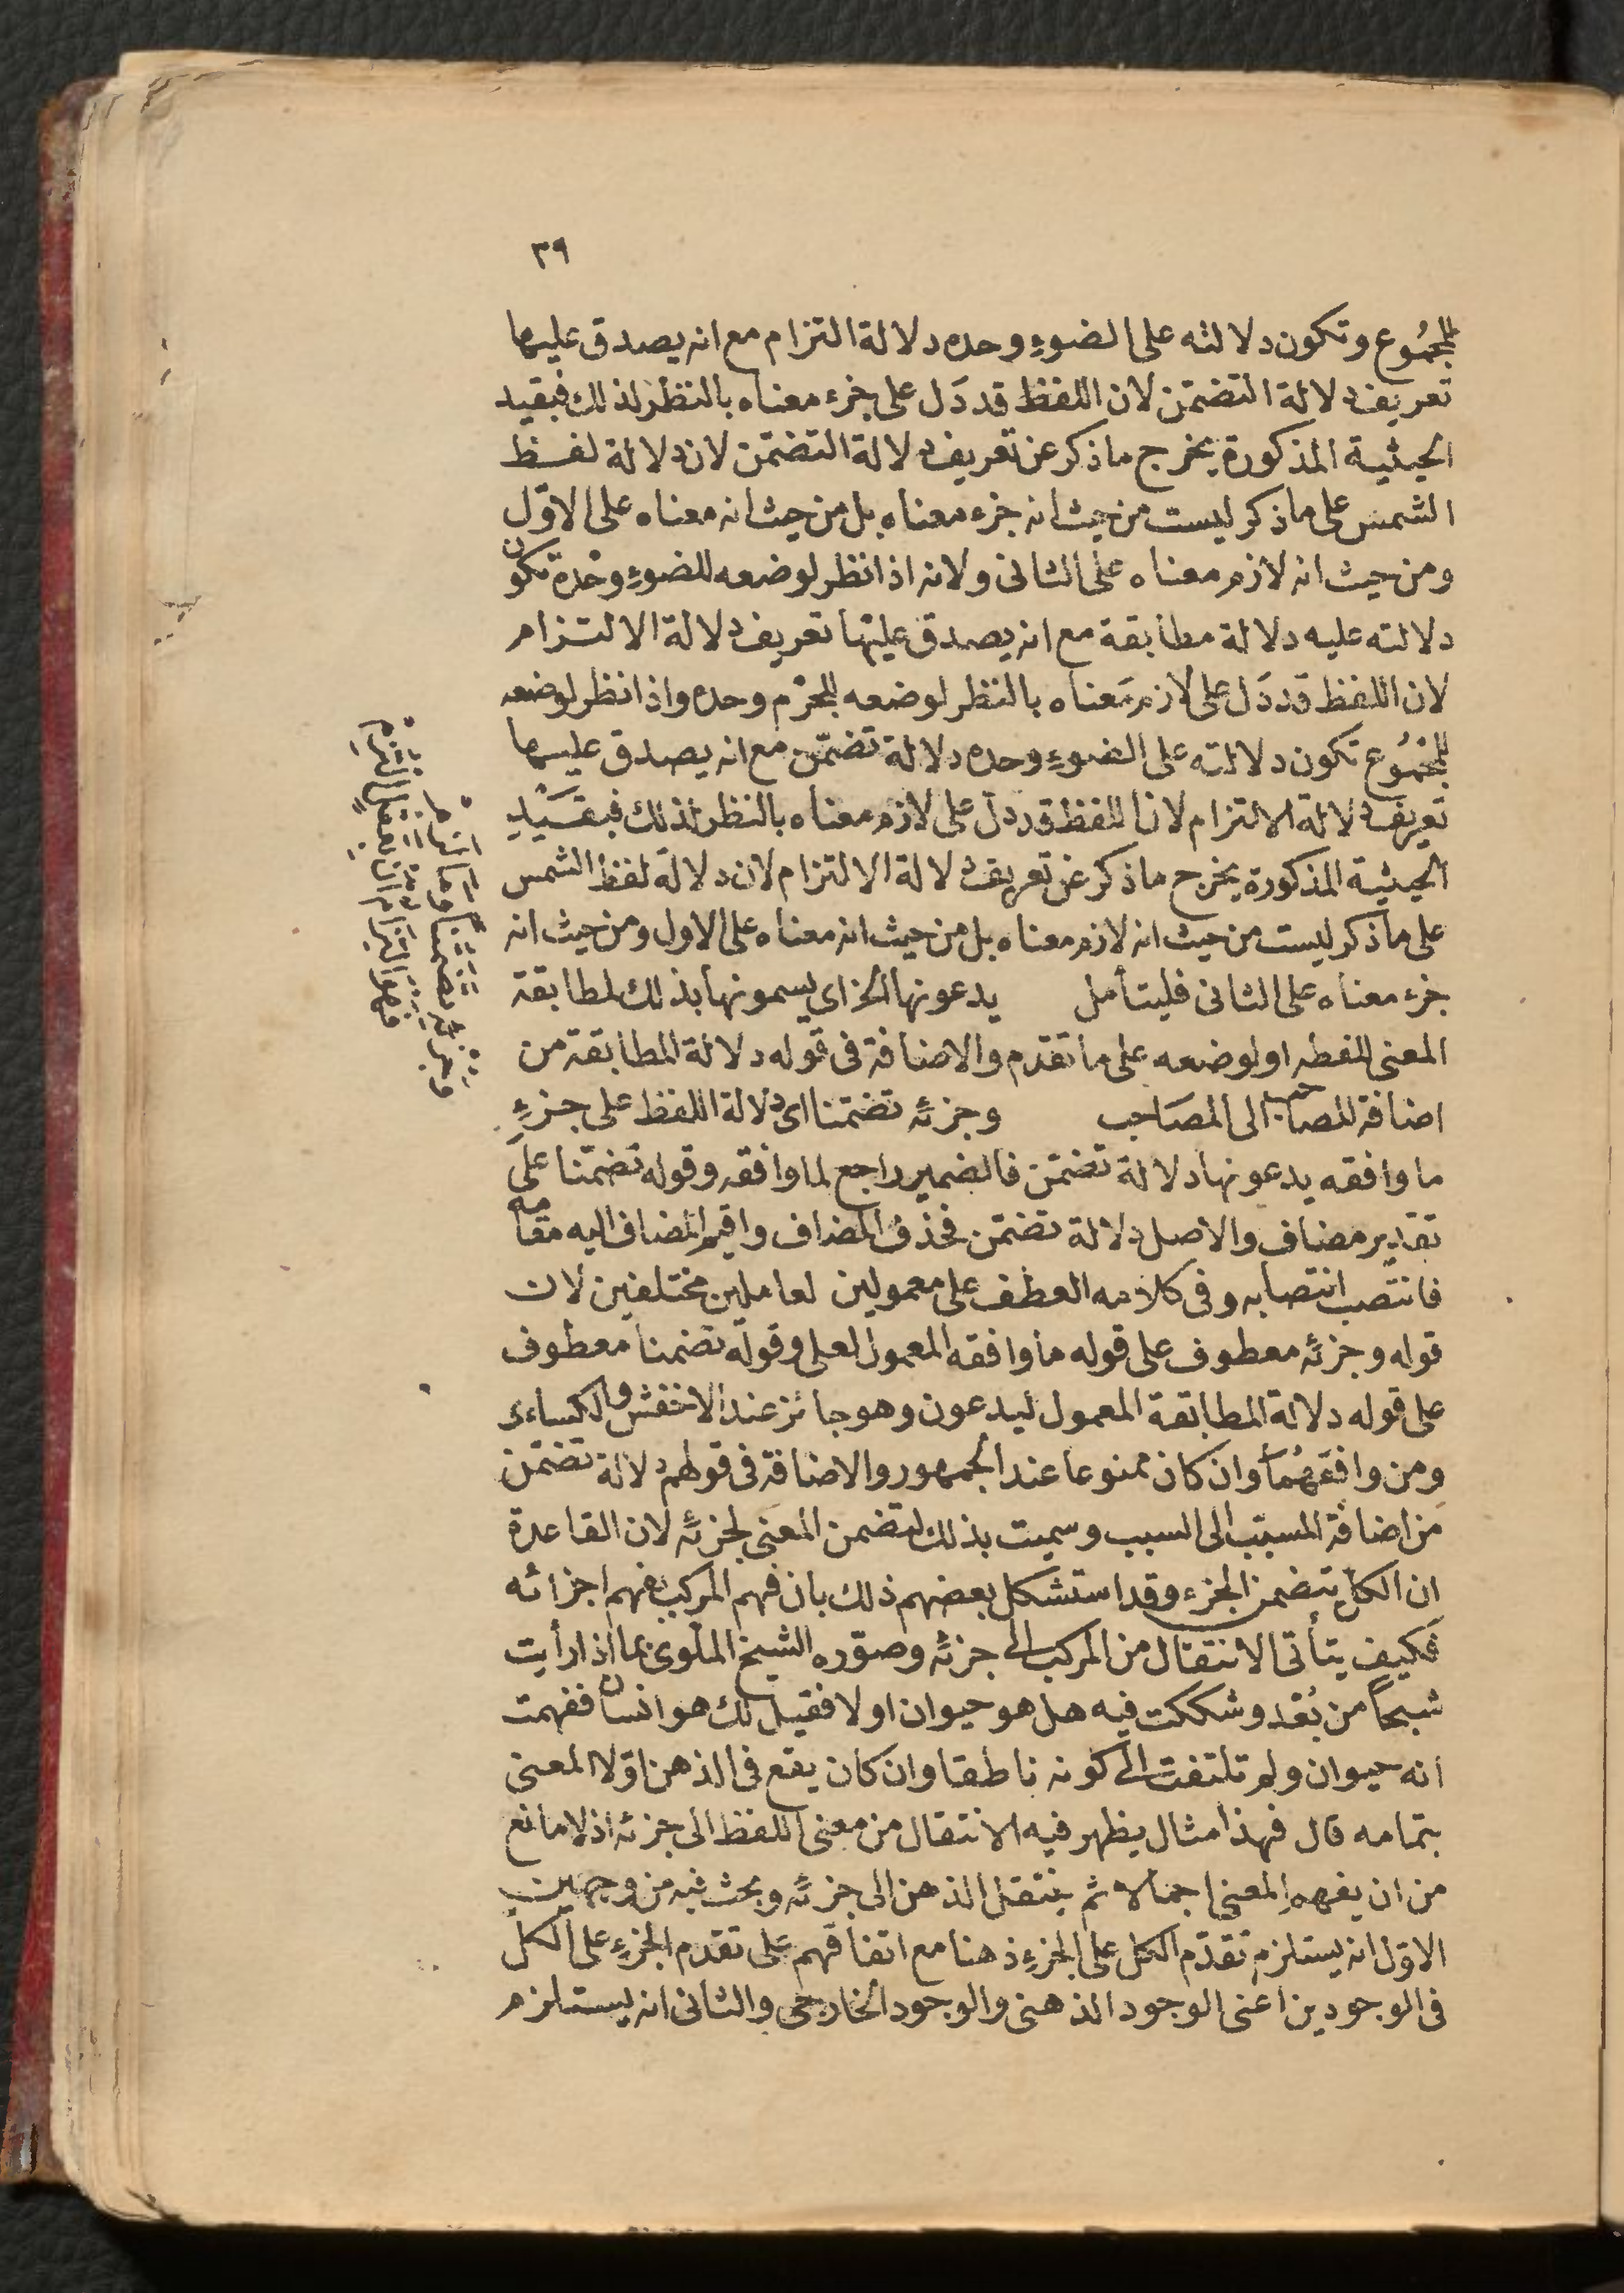 ٣٩
للمجموع وتكون دلالته على الضوء وحده دلالة التزام مع انه يصدق عليها
تعريف دلالة التضمّن لان اللفظ قد دَل على جزء معناه بالنظر لذلك فبقيد
الحيثية المذكورة يخرج ماذكر عن تعريف دلالة التضمّن لان دلالة لفظ
الشمس على ماذكر ليست من حيث انه جزء معناه بل من حيث انه معناه على الاوّل
ومن حيث انه لازم معناه على الثانى ولانه اذا نظر لوضعه للضوء وحْده تكون
دلالته عليه دلالة مطابقة مع انه يصدق عليها تعريف دلالة الالتزام
لان اللفظ قد دَل على لازم مَعناه بالنظر لوضعه للجرْم وحده واذا نظر لوضعه
للمجْمُوع تكون دلالته على الضوءِ وحده دلالة تضمّن مع انه يصدق عليها
تعريف دلالة الالتزام لان اللفظ قد دل على لازم معناه بالنظر لذلك فبقَيْدِ
الحيثية المذكورة يخرج ماذكر عن تعريف دلالة الالتزام لان دلالة لفظ الشمس
على ماذكر ليست من حيث انه لازم معناه بل من حيث انه معناه على الاول ومن حيث انه
جزء معناه على الثانى فليتأمل يدعونها الخ اى يسمونها بذلك لمطابقة
المعنى للفظه اولوضعه على ما تقدّم والاضافة فى قوله دلالة المطابقة من
اضافة المصاحب الى المصَاحِب وجزئه تضمّنا اى دلالة اللفظ على جزءِ
ما وافقه يدعونها دلالة تضمّن فالضمير راجع لما وافقه وقوله تضمّنا علَى
تقدير مضاف والاصل دلالة تضمّن فحُذف المضاف واقيم المضاف اليه مقامه
فانتصَب انتصابه وفى كلامه العطف على معمولين لعاملين مختلفين لان
قوله وجزئه معطوف على قوله ما وافقه المعمول لعلى وقوله تضمنا معطوف
على قوله دلالة المطابقة المعمول ليدعون وهو جائز عند الاخفش والكساءى
ومن وافقَهُمَا وان كان ممنوعا عند الجمهور والاضافة فى قولهم دلالة تضمّن
من اضافة المسبّب الى السبب وسميت بذلك لتضمن المعنى لجزئه لان القاعدة
ان الكل يتضمن الجزء وقد استشكل بعضهم ذلك بان فهم المركب بفهم اجزائه
فكيف يتأتى الانتقال من المركب الى جزئه وصوّره الشيخ الملوى بما اذا رأيت
شبحًا من بُعْد وشككت فيه هل هو حيوان اولا فقيل لك هو انسان ففهمت
انه حيوان ولم تلتفت الى كونه ناطقا وان كان يقع فى الذهن اوّلا المعنى
بتمامه قال فهذا مثال يظهر فيه الانتقال من معنى اللفظ الى جزئه اذ لا مانع
من ان يفهم المعنى اجمالا ثم ينتقل الذهن الى جزئه وبحث فيه من وجهين
الاوّل انه يستلزم تقدّم الكل على الجزءِ ذهنا مع اتفاقهم عَلى تقدم الجزءِ على الكل
فى الوجودين اعنى الوجود الذهنى والوجود الخارجى والثانى انه يستلزم